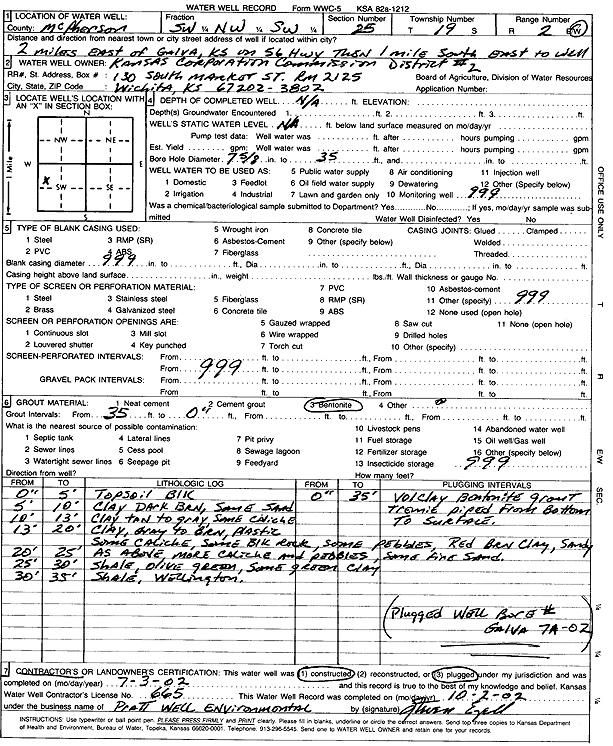 WATER WELL RECORD Form WWC-5 KSA 82a-1212
1 LOCATION OF WATER WELL: Fraction Section Number Township Number Range Number
County: McPherson SW ¼ NW ¼ SW ¼ 25 T 19 S R 2 E/W
Distance and direction from nearest town or city street address of well if located within city?
2 miles East of Galva, KS on 56 Hwy Turn 1 mile South East to well
2 WATER WELL OWNER: Kansas Corporation Commission District #2
RR#, St. Address, Box # : 130 South Market St. Rm 2125 Board of Agriculture, Division of Water Resources
City, State, ZIP Code : Wichita, KS 67202-3802 Application Number:
3 LOCATE WELL'S LOCATION WITH AN "X" IN SECTION BOX:
N
NW NE
W E
X
SW SE
S
1 Mile
4 DEPTH OF COMPLETED WELL N/A ft. ELEVATION:
Depth(s) Groundwater Encountered 1. ft. 2. ft. 3. ft.
WELL'S STATIC WATER LEVEL N/A ft. below land surface measured on mo/day/yr
Pump test data: Well water was ft. after hours pumping gpm
Est. Yield gpm: Well water was ft. after hours pumping gpm
Bore Hole Diameter 7 5/8 in. to 35 ft., and in. to ft.
WELL WATER TO BE USED AS: 5 Public water supply 8 Air conditioning 11 Injection well
1 Domestic 3 Feedlot 6 Oil field water supply 9 Dewatering 12 Other (Specify below)
2 Irrigation 4 Industrial 7 Lawn and garden only 10 Monitoring well 999
Was a chemical/bacteriological sample submitted to Department? Yes No ; If yes, mo/day/yr sample was submitted
Water Well Disinfected? Yes No
5 TYPE OF BLANK CASING USED: 5 Wrought iron 8 Concrete tile CASING JOINTS: Glued Clamped
1 Steel 3 RMP (SR) 6 Asbestos-Cement 9 Other (specify below) Welded
2 PVC 4 ABS 7 Fiberglass Threaded
Blank casing diameter 999 in. to ft., Dia in. to ft., Dia in. to ft.
Casing height above land surface in., weight lbs./ft. Wall thickness or gauge No.
TYPE OF SCREEN OR PERFORATION MATERIAL: 7 PVC 10 Asbestos-cement
1 Steel 3 Stainless steel 5 Fiberglass 8 RMP (SR) 11 Other (specify) 999
2 Brass 4 Galvanized steel 6 Concrete tile 9 ABS 12 None used (open hole)
SCREEN OR PERFORATION OPENINGS ARE: 5 Gauzed wrapped 8 Saw cut 11 None (open hole)
1 Continuous slot 3 Mill slot 6 Wire wrapped 9 Drilled holes
2 Louvered shutter 4 Key punched 7 Torch cut 10 Other (specify)
SCREEN-PERFORATED INTERVALS: From 999 ft. to ft., From ft. to ft.
From ft. to ft., From ft. to ft.
GRAVEL PACK INTERVALS: From ft. to ft., From ft. to ft.
From ft. to ft., From ft. to ft.
6 GROUT MATERIAL: 1 Neat cement 2 Cement grout 3 Bentonite 4 Other
Grout Intervals: From 35 ft. to 0" ft., From ft. to ft., From ft. to ft.
What is the nearest source of possible contamination: 10 Livestock pens 14 Abandoned water well
1 Septic tank 4 Lateral lines 7 Pit privy 11 Fuel storage 15 Oil well/Gas well
2 Sewer lines 5 Cess pool 8 Sewage lagoon 12 Fertilizer storage 16 Other (specify below)
3 Watertight sewer lines 6 Seepage pit 9 Feedyard 13 Insecticide storage 999
Direction from well? How many feet?
FROM TO LITHOLOGIC LOG FROM TO PLUGGING INTERVALS
0" 5' Topsoil Blk 0" 35' Volclay Bentonite grout
5' 10' Clay Dark Brn, Some Sand Tremie piped from Bottom
10' 13' Clay tan to gray Some Caliche To Surface.
13' 20' Clay, Gray to Brn, Plastic
Some Caliche, Some Blk Rock, Some pebbles, Red Brn Clay, Sandy
20' 25' As above, more Caliche and pebbles, Some fine Sand.
25' 30' Shale, olive green, Some green Clay
30' 35' Shale, Wellington.
(Plugged Well Bore #
Galva 7A-02)
7 CONTRACTOR'S OR LANDOWNER'S CERTIFICATION: This water well was (1) constructed, (2) reconstructed, or (3) plugged under my jurisdiction and was
completed on (mo/day/year) 7-3-02 and this record is true to the best of my knowledge and belief. Kansas
Water Well Contractor's License No. 665 This Water Well Record was completed on (mo/day/yr) 10-2-02
under the business name of Pratt Well Environmental by (signature)
INSTRUCTIONS: Use typewriter or ball point pen. PLEASE PRESS FIRMLY and PRINT clearly. Please fill in blanks, underline or circle the correct answers. Send top three copies to Kansas Department
of Health and Environment, Bureau of Water, Topeka, Kansas 66620-0001. Telephone: 913-296-5545. Send one to WATER WELL OWNER and retain one for your records.
OFFICE USE ONLY
T
R
E/W
SEC.
¼
¼
¼